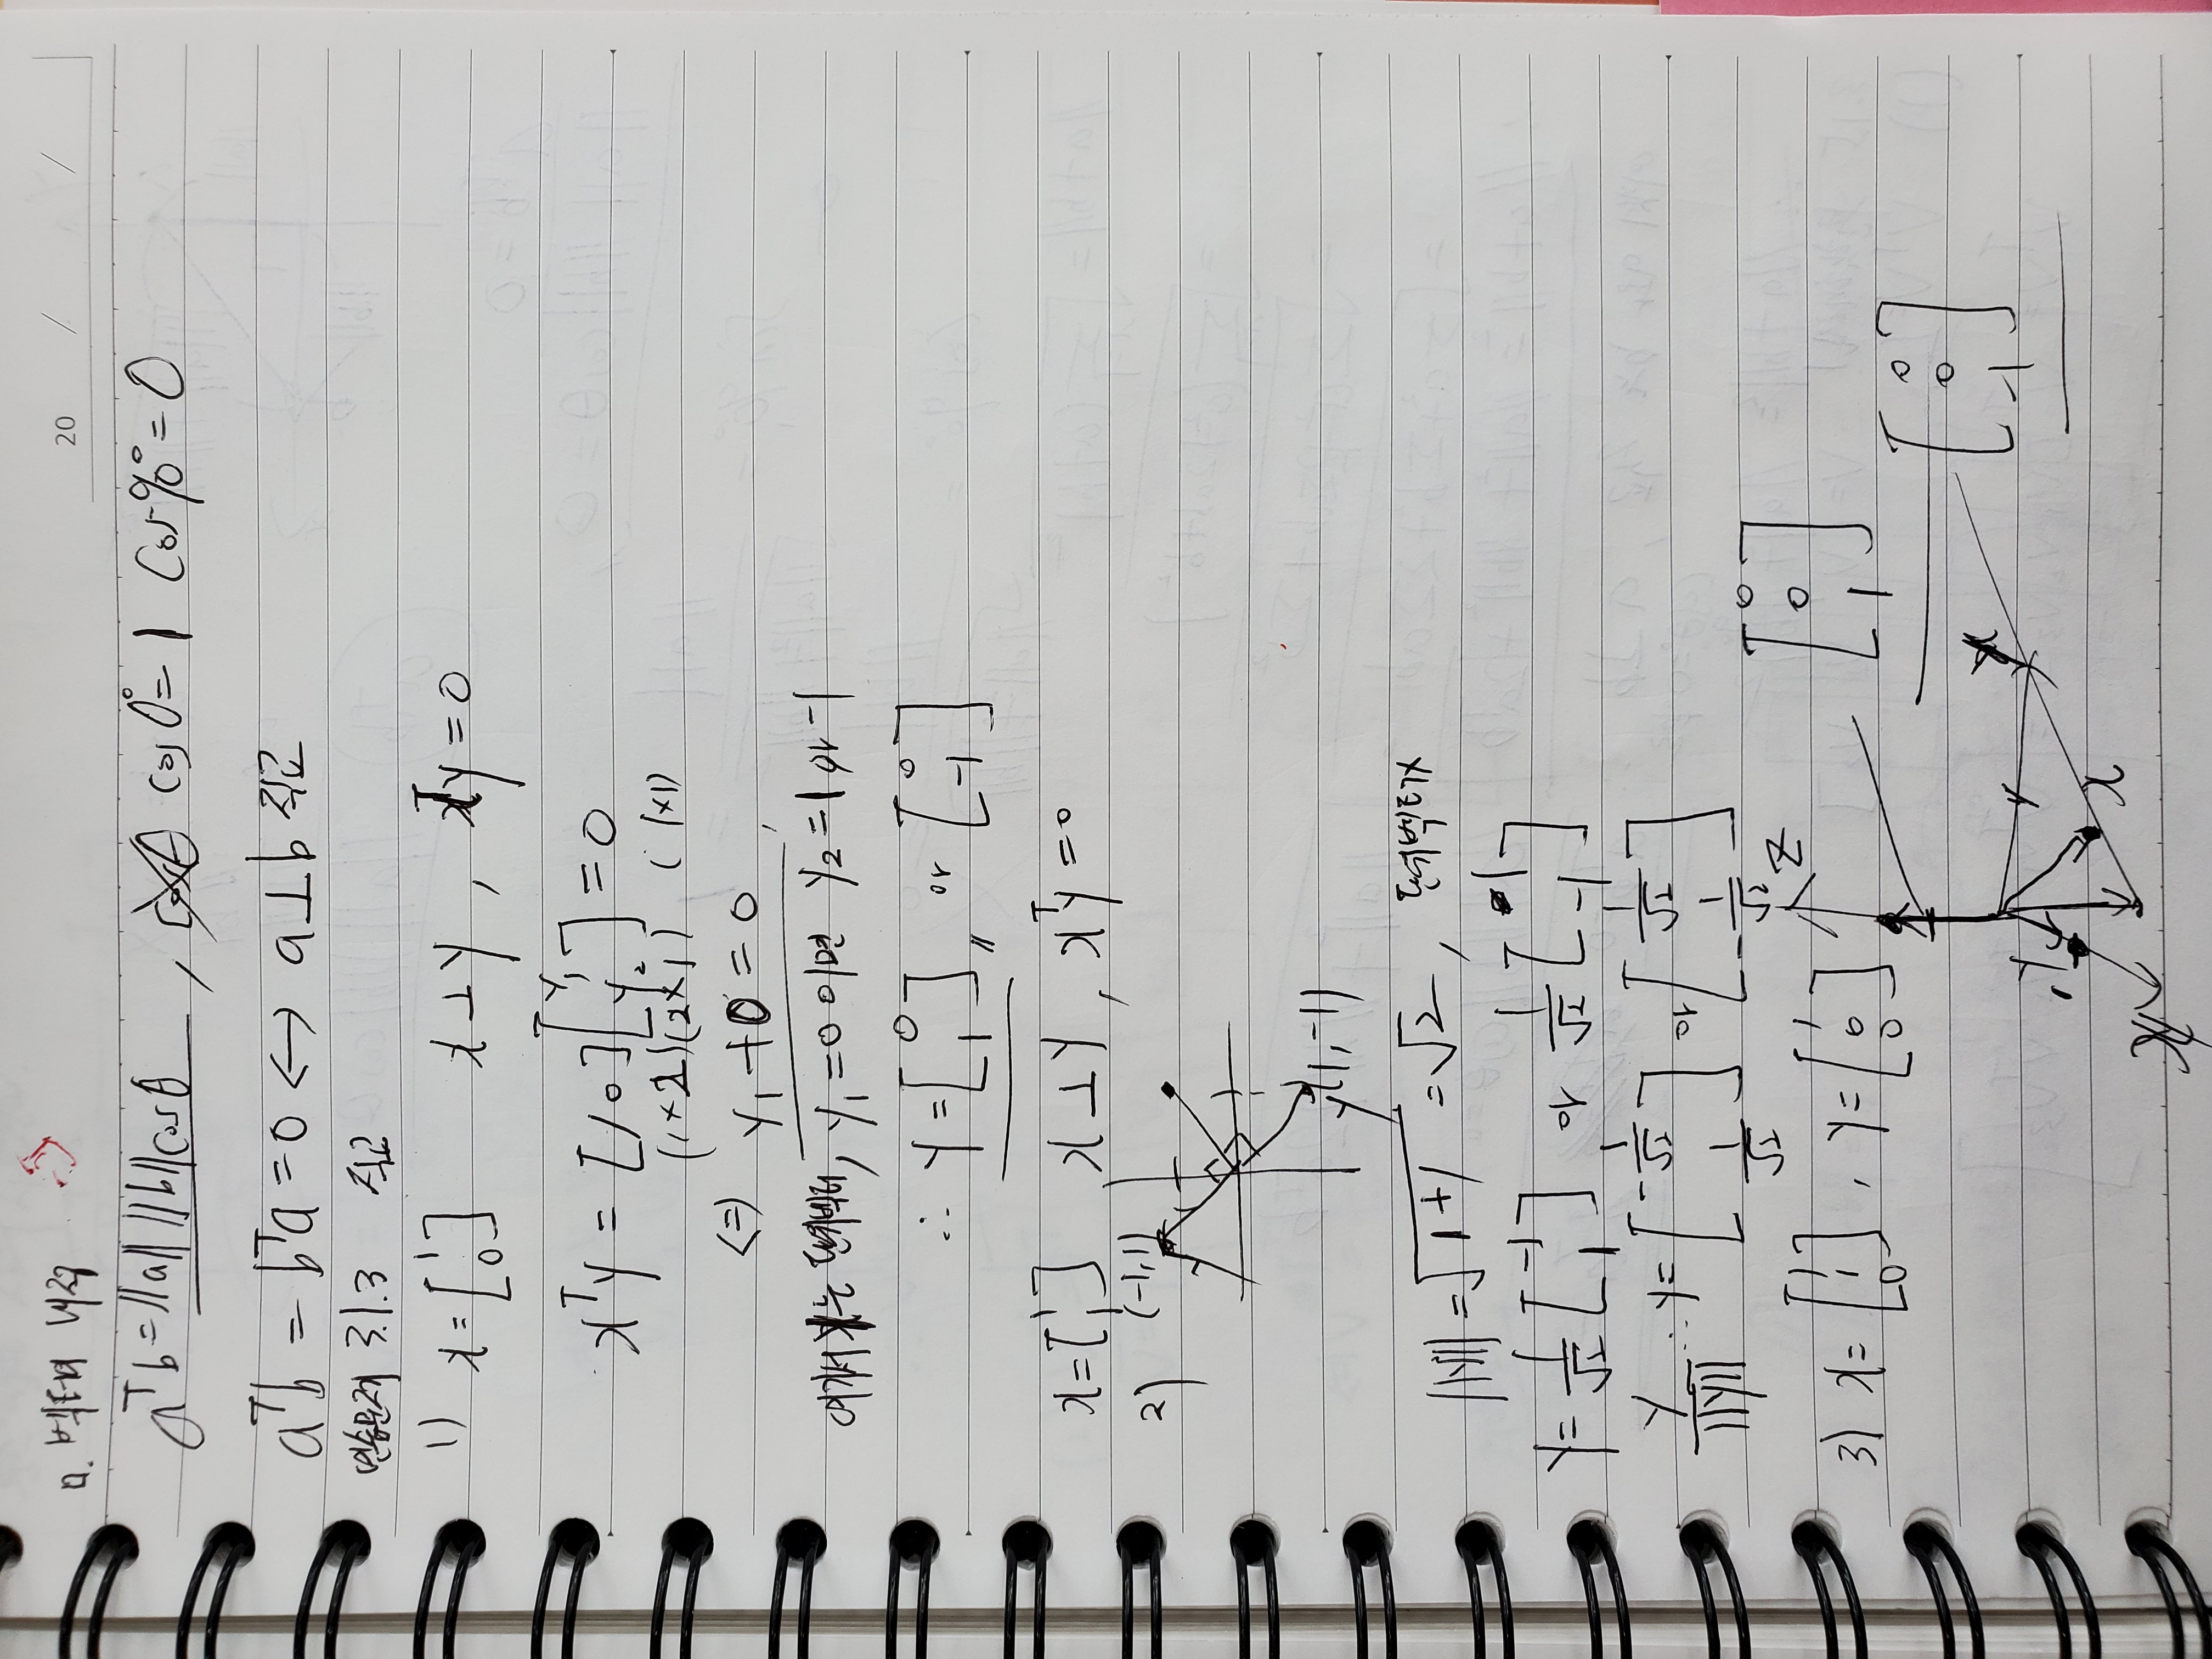 ㅁ. 벡터의 내적
20 / /
aᵀb = ||a|| ||b|| cosθ , cos0° = 1 cos90° = 0
aᵀb = bᵀa = 0 <-> a⊥b 직교
연습문제 3.1.3 직교
1) x = [1 0] x⊥y , xᵀy = 0
xᵀy = [1 0][y₁ y₂] = 0
(1×2)(2×1) (1×1)
<=> y₁ + 0 = 0
여기서 는 단위벡터, y₁ = 0 이면 y₂ = 1 or -1
∴ y = [0 1] or [0 -1]
x = [1 1] x⊥y , xᵀy = 0
2) (-1,1)
(1,-1)
y
||y|| = √1+1 = √2 , 단위벡터가
y = 1/√2 [-1 1] or 1/√2 [1 -1]
y/||y|| ∴ y = [-1/√2 1/√2] or [1/√2 -1/√2]
3) x = [1 1 0] , y = [1 0 0]
z
[0 0 1]
[0 0 -1]
y
x